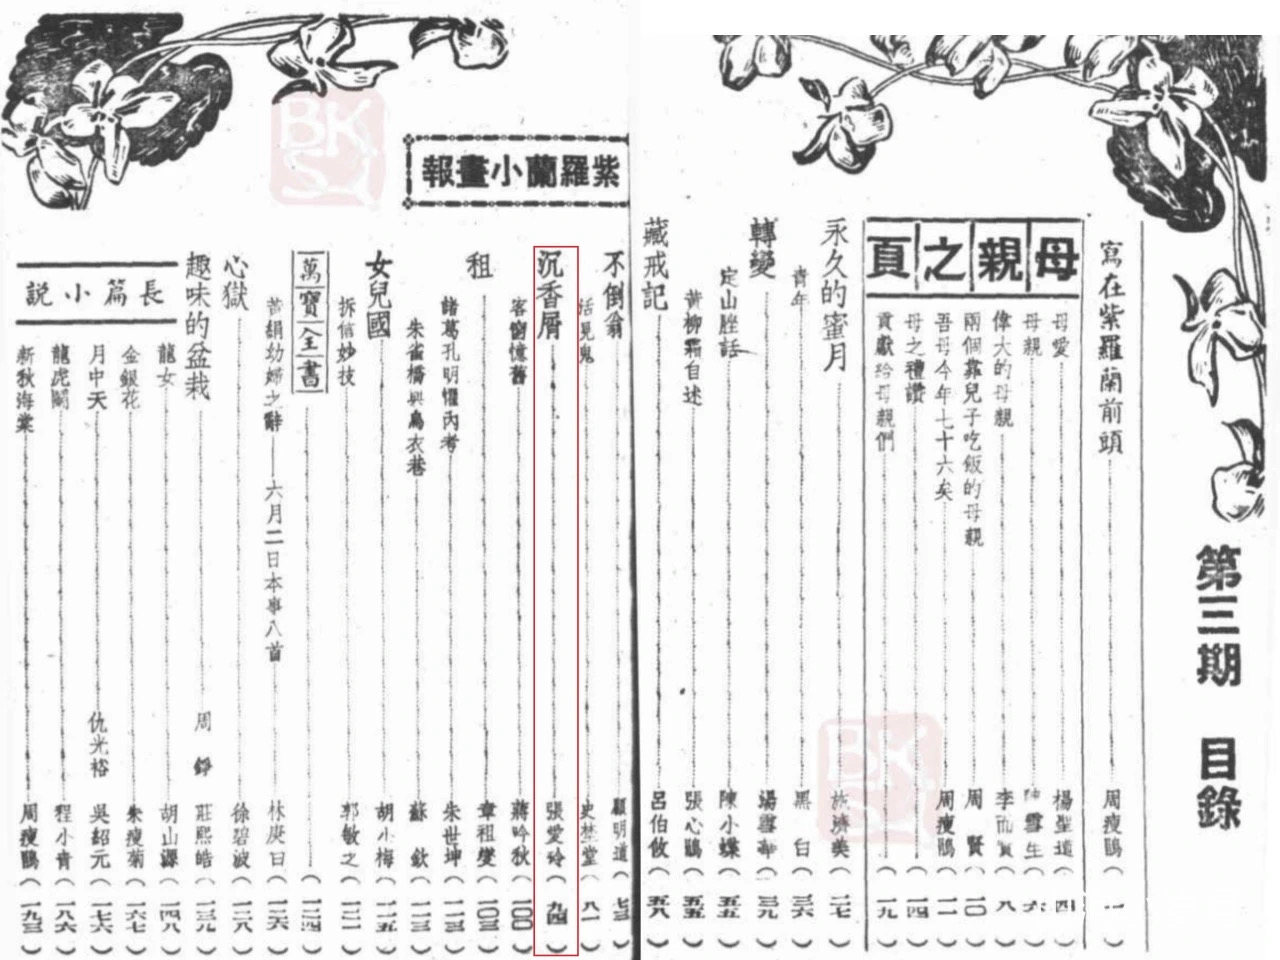 第三期 目錄
寫在紫羅蘭前頭 周瘦鵑(一)
母親之頁
母愛 楊聖遺(四)
母親 雪生
偉大的母親 李而賢(八)
兩個靠兒子吃飯的母親 周賢(一〇)
吾母今年七十六矣 周瘦鵑(一一)
母之禮讚(一四)
貢獻給母親們(一九)
永久的蜜月 施濟美(二七)
青年 黑白(三六)
轉變 湯雪華(三九)
定山脞話 陳小蝶(五五)
黃柳霜自述 張心鵑(五五)
藏戒記 呂伯攸(五八)
紫羅蘭小畫報
不倒翁 顧明道(七三)
活見鬼 史楚堂(八一)
沉香屑 張愛玲(九四)
客窗憶舊 蔣吟秋(一〇〇)
租 章祖燮(一〇三)
諸葛孔明懼內考 朱世坤(一一三)
朱雀橋與烏衣巷 蘇欽(一一三)
女兒國 胡小梅(一一五)
拆信妙技 郭敏之(一二二)
萬寶全書(一二四)
黃絹幼婦之辭 六月二日本事八首 林庚白(一二六)
心獄 徐碧波(一二八)
趣味的盆栽 周錚 莊熙皓(一三九)
長篇小說
龍女 胡山源(一四八)
金銀花 朱瘦菊(一六七)
月中天 仇光裕 吳紹元(一七六)
龍虎鬬 程小青(一八六)
新秋海棠 周瘦鵑(一九三)